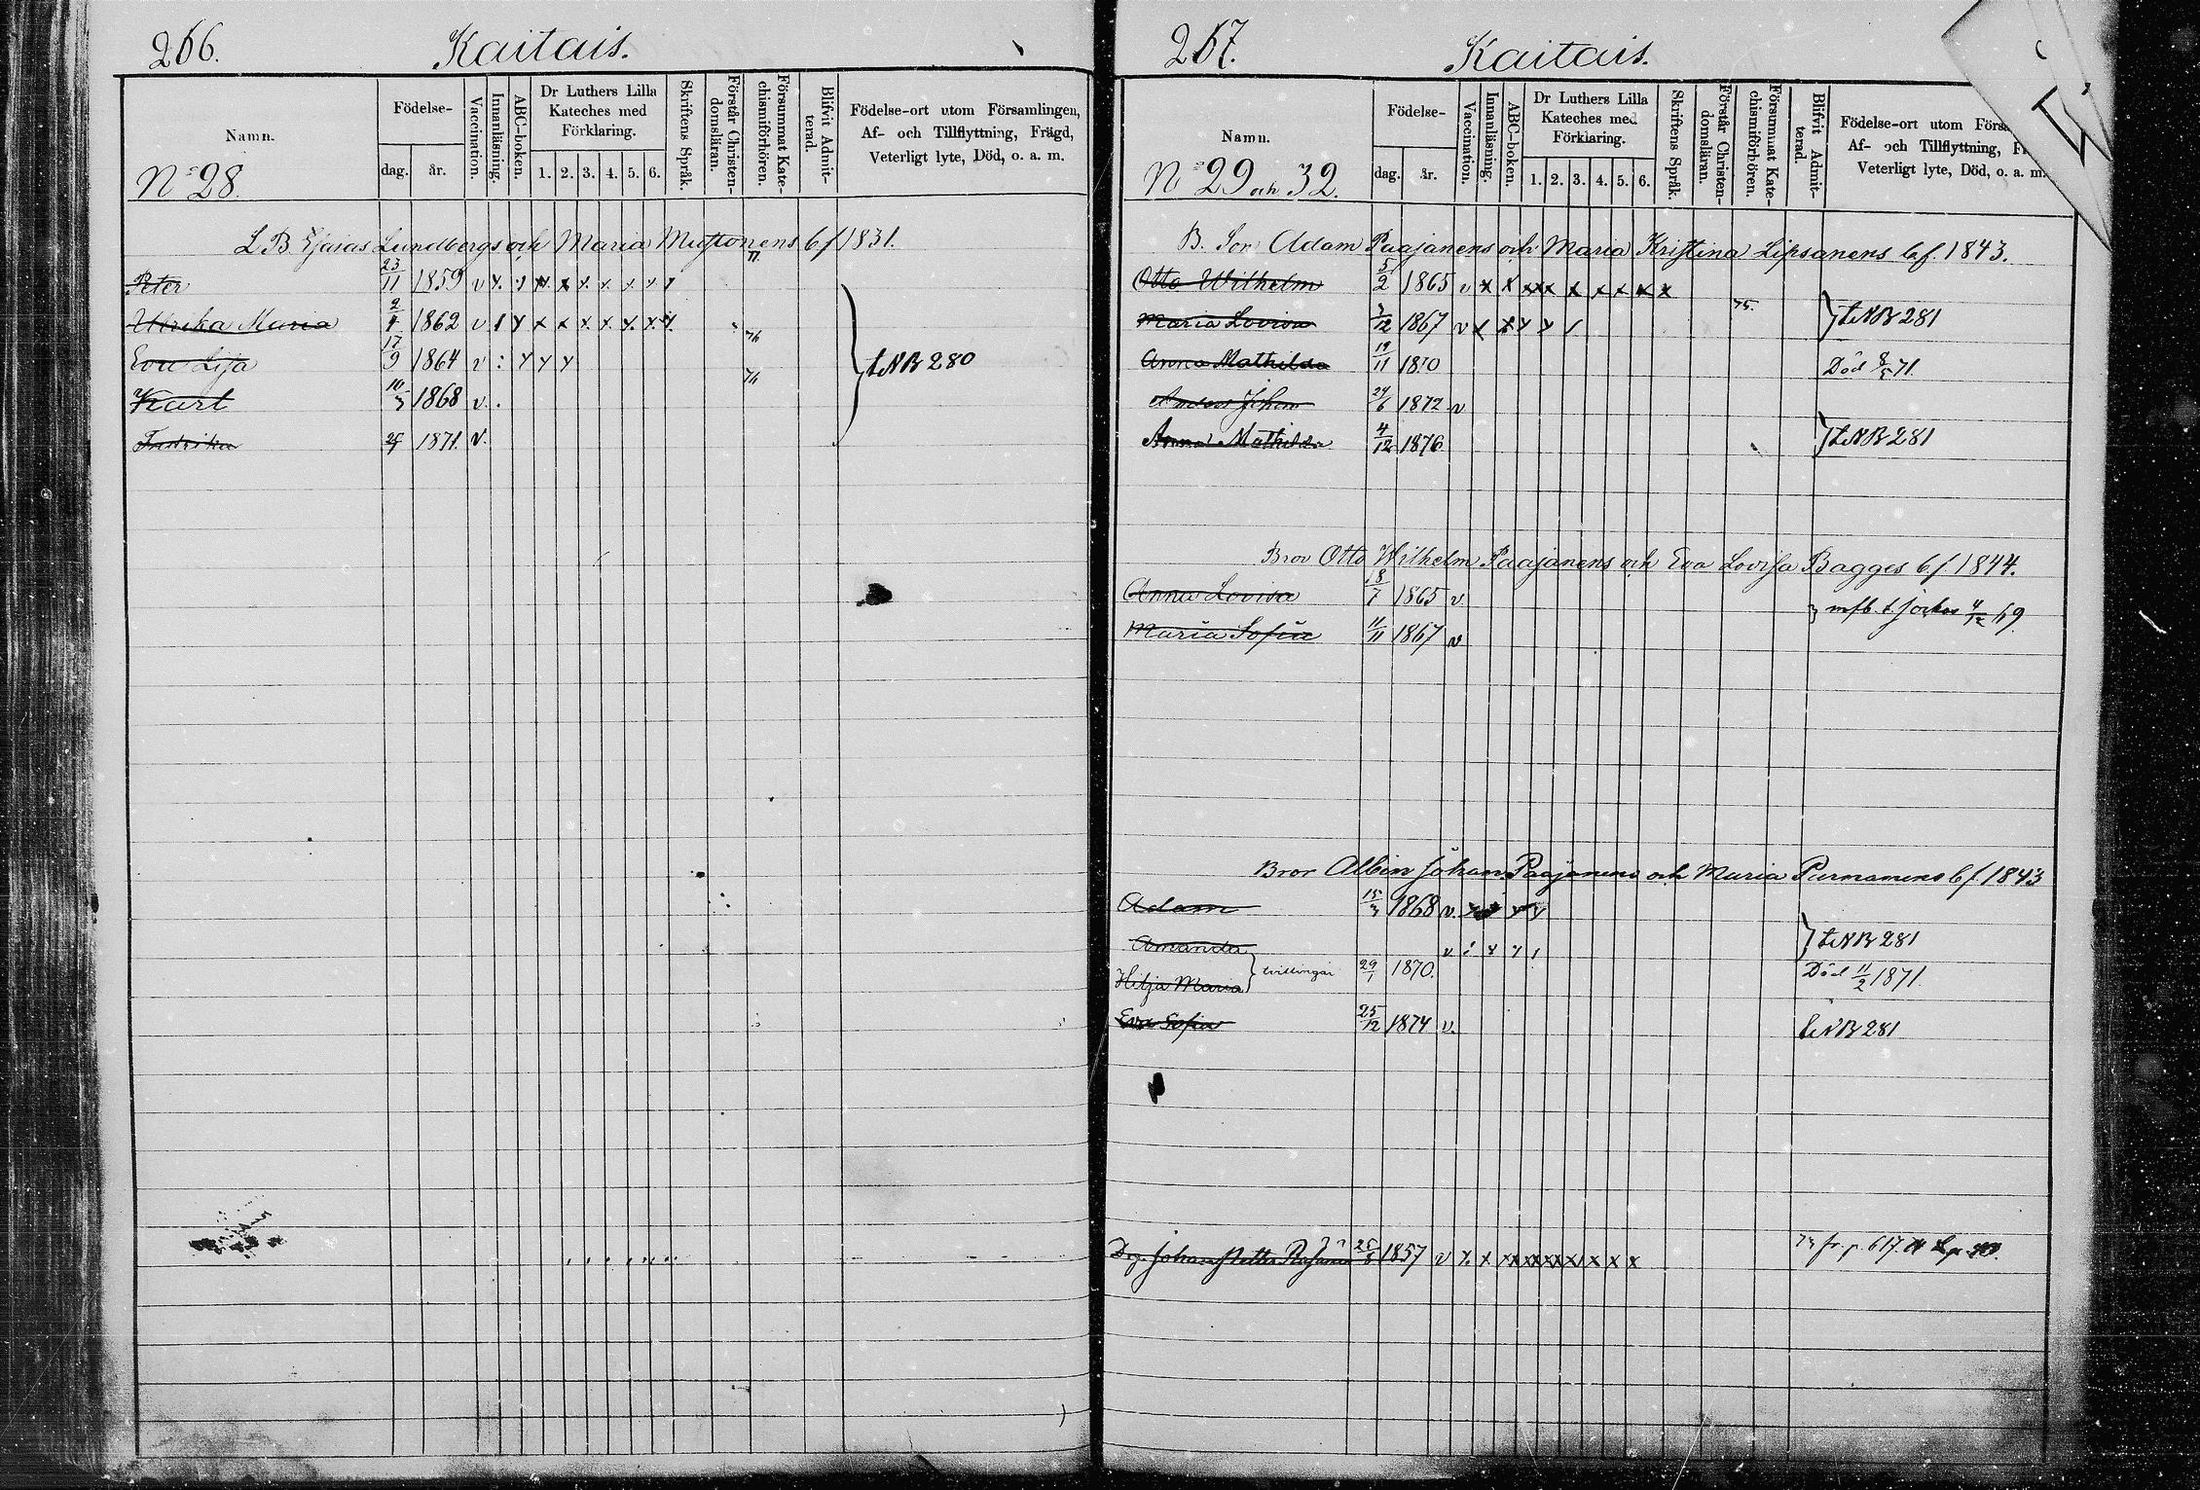 266. Kaitais.
Namn.
Födelse-
dag. år.
Vaccination.
Innanläsning.
ABC-boken.
Dr Luthers Lilla Kateches med Förklaring.
1. 2. 3. 4. 5. 6.
Skriftens Språk.
Förstår Christen-domsläran.
Försummat Kate-chismiförhören.
Blifvit Admit-terad.
Födelse-ort utom Församlingen,
Af- och Tillflyttning, Frägd,
Veterligt lyte, Död, o. a. m.
No 28.
L. B. Esaias Lundbergs och Maria b f 1831.
Peter 23/11 1859 v x x x x x x x x
77
Ulrika Maria 1862 v x x x x x x x x
76
Eva Lisa 17/9 1864 v x x x
76
LNB 280
Karl 10/3 1868 v.
Fredrika 1871. v.
267. Kaitais.
Namn.
Födelse-
dag. år.
Vaccination.
Innanläsning.
ABC-boken.
Dr Luthers Lilla Kateches med Förklaring.
1. 2. 3. 4. 5. 6.
Skriftens Språk.
Förstår Christen-domsläran.
Försummat Kate-chismiförhören.
Blifvit Admit-terad.
Födelse-ort utom Förs
Af- och Tillflyttning, Fr
Veterligt lyte, Död, o. a. m.
No 29 och 32.
B. Son Adam Paajanens och Maria Kristina Lipsanens b f. 1843.
Otto Wilhelm 5/2 1865 v x x x x x x x x x
75.
Maria Lovisa 3/12 1867 v x x x x
LNB 281
Anna Mathilda 19/11 1870 Död 8/5 71.
Anders Johan 24/6 1872 v
Anna Mathilda 4/12 1876. LNB 281
Bror Otto Wilhelm Paajanens och Eva Lovisa Bagges b f 1844.
Anna Lovisa 18/7 1865 v.
mfb. t. Jockas 69.
Maria Sofia 11/11 1867 v
Bror Albin Johan Paajanens och Maria Purmanens b f. 1843
Adam 15/3 1868 v. x x x x
Amanda v x x
LNB 281
Hilja Maria tvillingar 29/1 1870. Död 11/2 1871.
Eva Sofia 25/12 1874 v. LNB 281
Johan Petter 1857 v x x x x x x x x x x
73 fr p. 617.